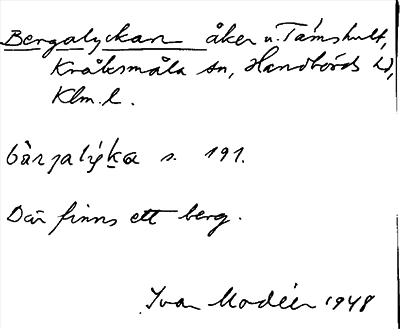 Bergalyckan åker u. Tämshult,
Kråksmåla sn, Handbörds hd,
Klm. l.
bärjalýka s. 191.
Där finns ett berg.
Ivar Modéer 1948